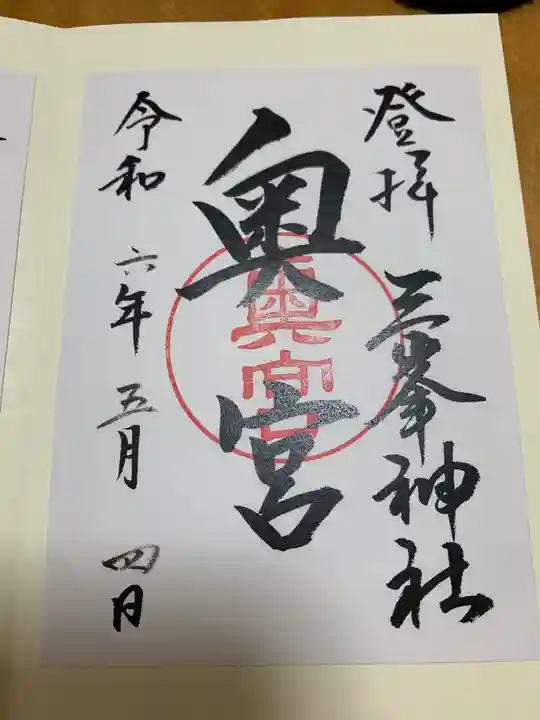 登拝 三峯神社
奥宮
奥宮
令和六年五月四日